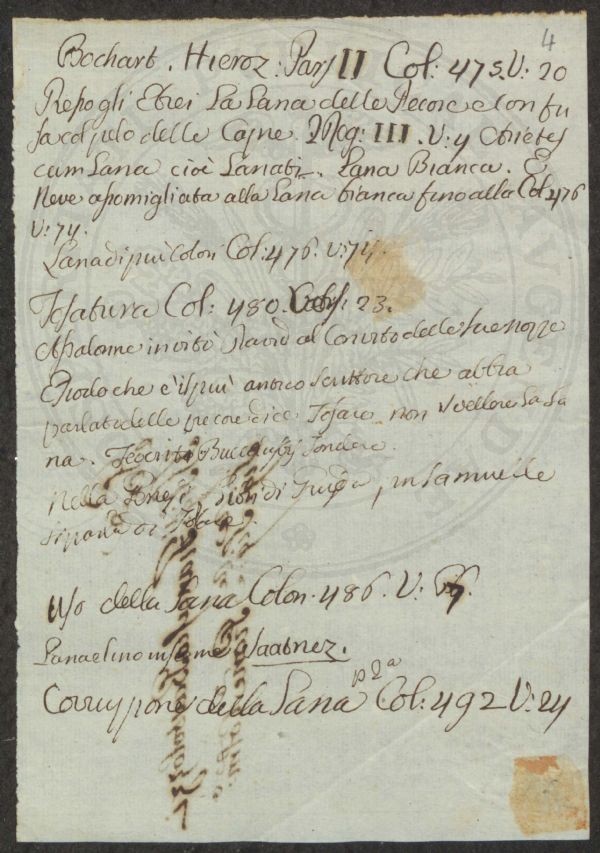 4
Bochart. Hieroz: Pars II Col: 475. V: 20
Presso gli Ebrei La Lana delle Pecore e con fu
sa col pelo delle Capre. Reg: III. V: 4 Arietes
cum Lana cioè Lanati. Lana Bianca. E
Neve assomigliata alla Lana bianca fino alla Col 476
V: 74.
Lana di più Colori Col: 476. V: 74.
Tosatura Col: 480. 23.
Assalonne invitò David al Convito delle sue nozze
Esiodo che è il più antico scrittore che abbia
parlato delle pecore dice Tosare, non svellere La La
na. Teocrito tondere.
Nella Genesi di Giuda, in Samuelle
si parla di Tosare.
Uso della Lana Colon. 486. V:
Lana e lino insieme Saatnez.
Corruzione della Lana Col: 492 V: 24